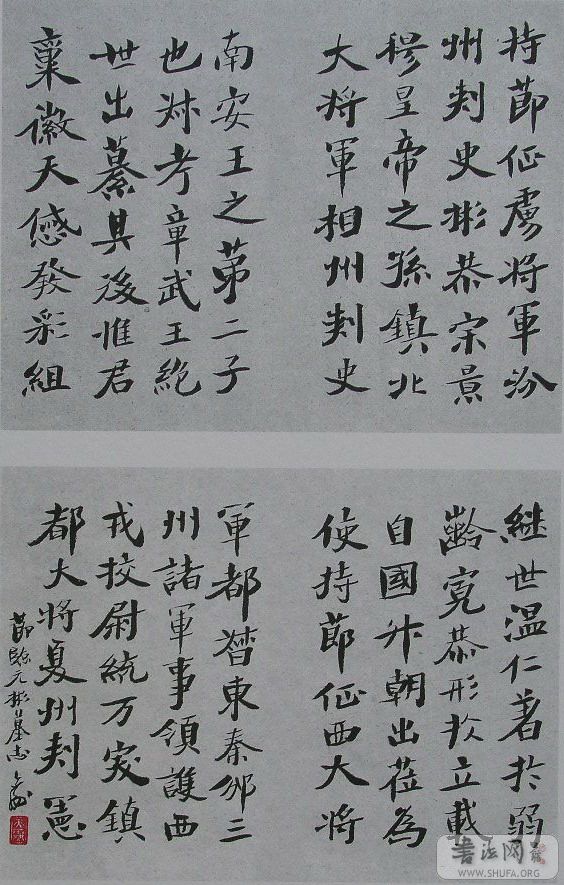 持節征虜将軍汾
州刾史彬恭宗景
穆皇帝之孫鎮北
大将軍相州刾史
南安王之第二子
也叔考章武王絶
世出纂其後惟君
稟徽天感發彩組
継世温仁著於弱
齡寛恭形於立載
自國升朝出莅為
使持節征西大将
軍都督東秦邠三
州諸軍事領護西
戎挍尉統万突鎮
都大将夏州刾憲
節臨元彬墓志
書法网
WWW.SHUFA.ORG